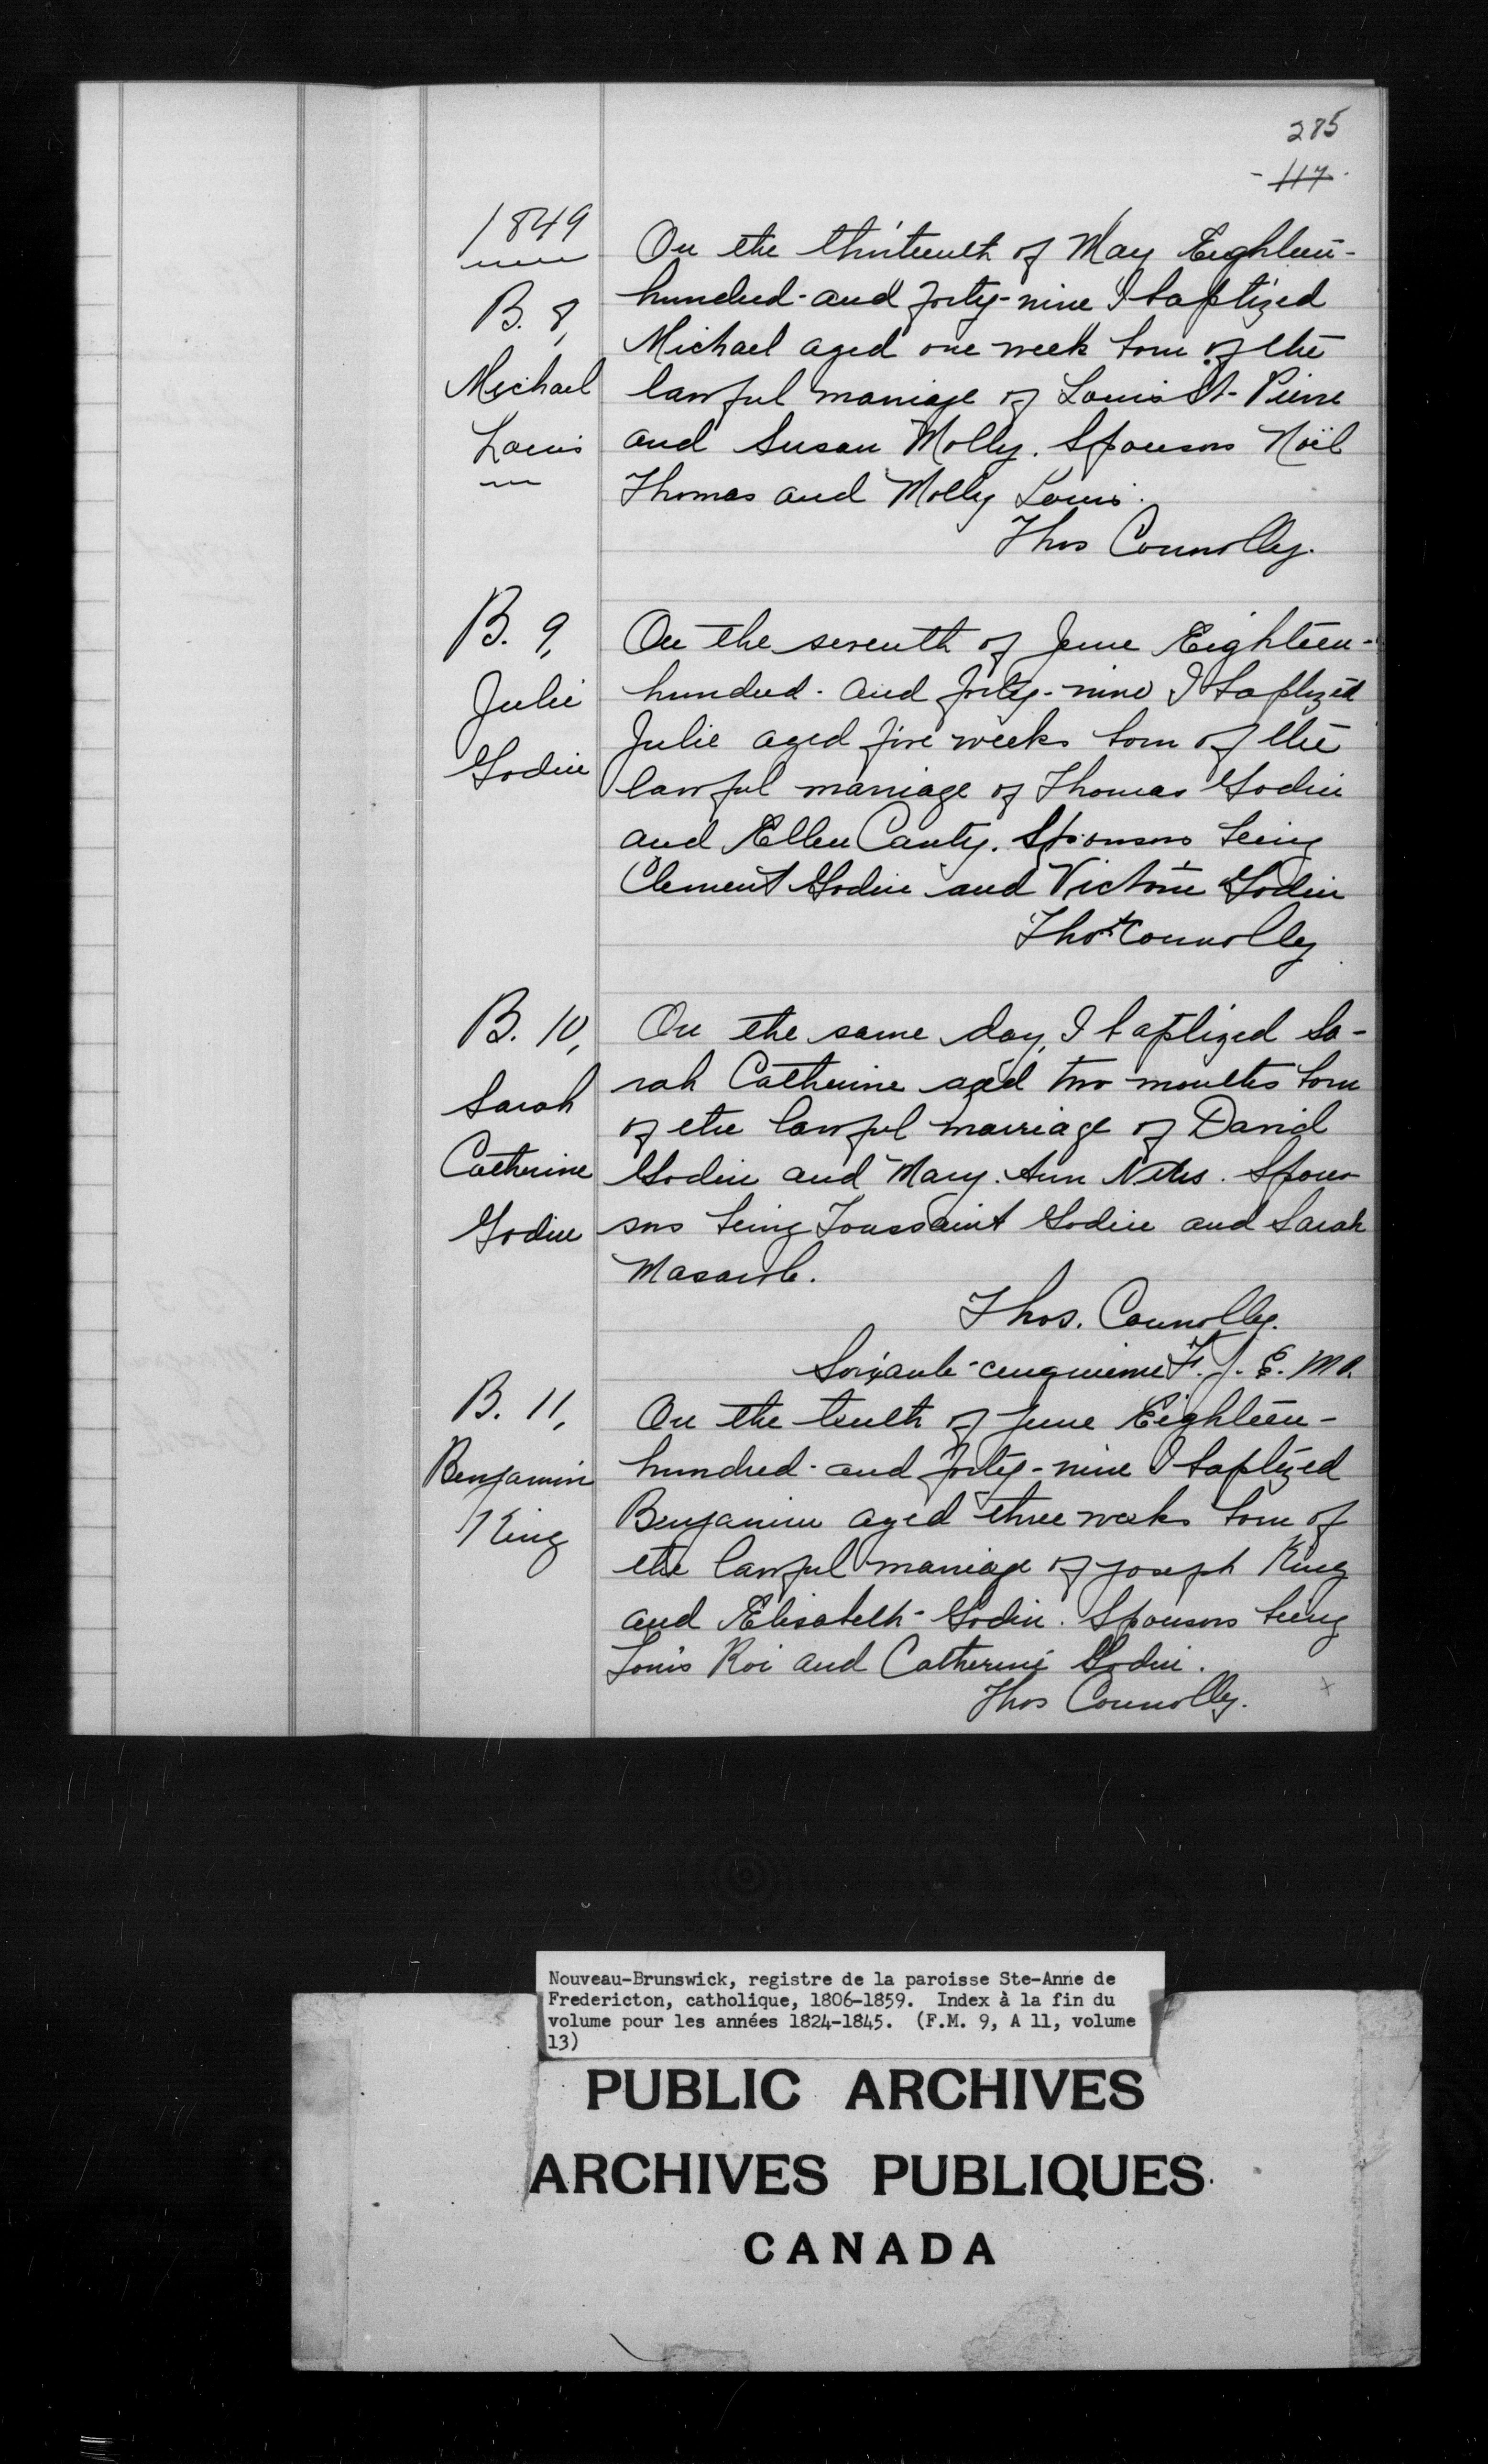 285
- 117 -
1849
B. 8,
Michael
Louis
On the thirteenth of May Eighteen-
hundred-and forty-nine I baptized
Michael aged one week born of the
lawful marriage of Louis St-Pierre
and Susan Molly. Sponsors Noël
Thomas and Molly Louis.
Thos Connolly.
B. 9,
Julie
Godin
On the seventh of June Eighteen-
hundred-and forty-nine I baptized
Julie aged five weeks born of the
lawful marriage of Thomas Godin
and Ellen Canty. Sponsors being
Clement Godin and Victoire Godin
Thos Connolly
B. 10,
Sarah
Catherine
Godin
On the same day, I baptized Sa-
rah Catherine aged two months born
of the lawful marriage of David
Godin and Mary-Ann Neles. Spon-
sors being Toussaint Godin and Sarah
Thos. Connolly.
Soixante-cinquième F. J. E. M
B. 11,
Benjamin
King
On the tenth of June Eighteen-
hundred-and forty-nine I baptized
Benjamin aged three weeks born of
the lawful marriage of Joseph King
and Elisabeth-Godin. Sponsors being
Louis Roi and Catherine Godin.
Thos Connolly.
x
Nouveau-Brunswick, registre de la paroisse Ste-Anne de
Fredericton, catholique, 1806-1859. Index à la fin du
volume pour les années 1824-1845. (F.M. 9, A 11, volume
13)
PUBLIC ARCHIVES
ARCHIVES PUBLIQUES
CANADA